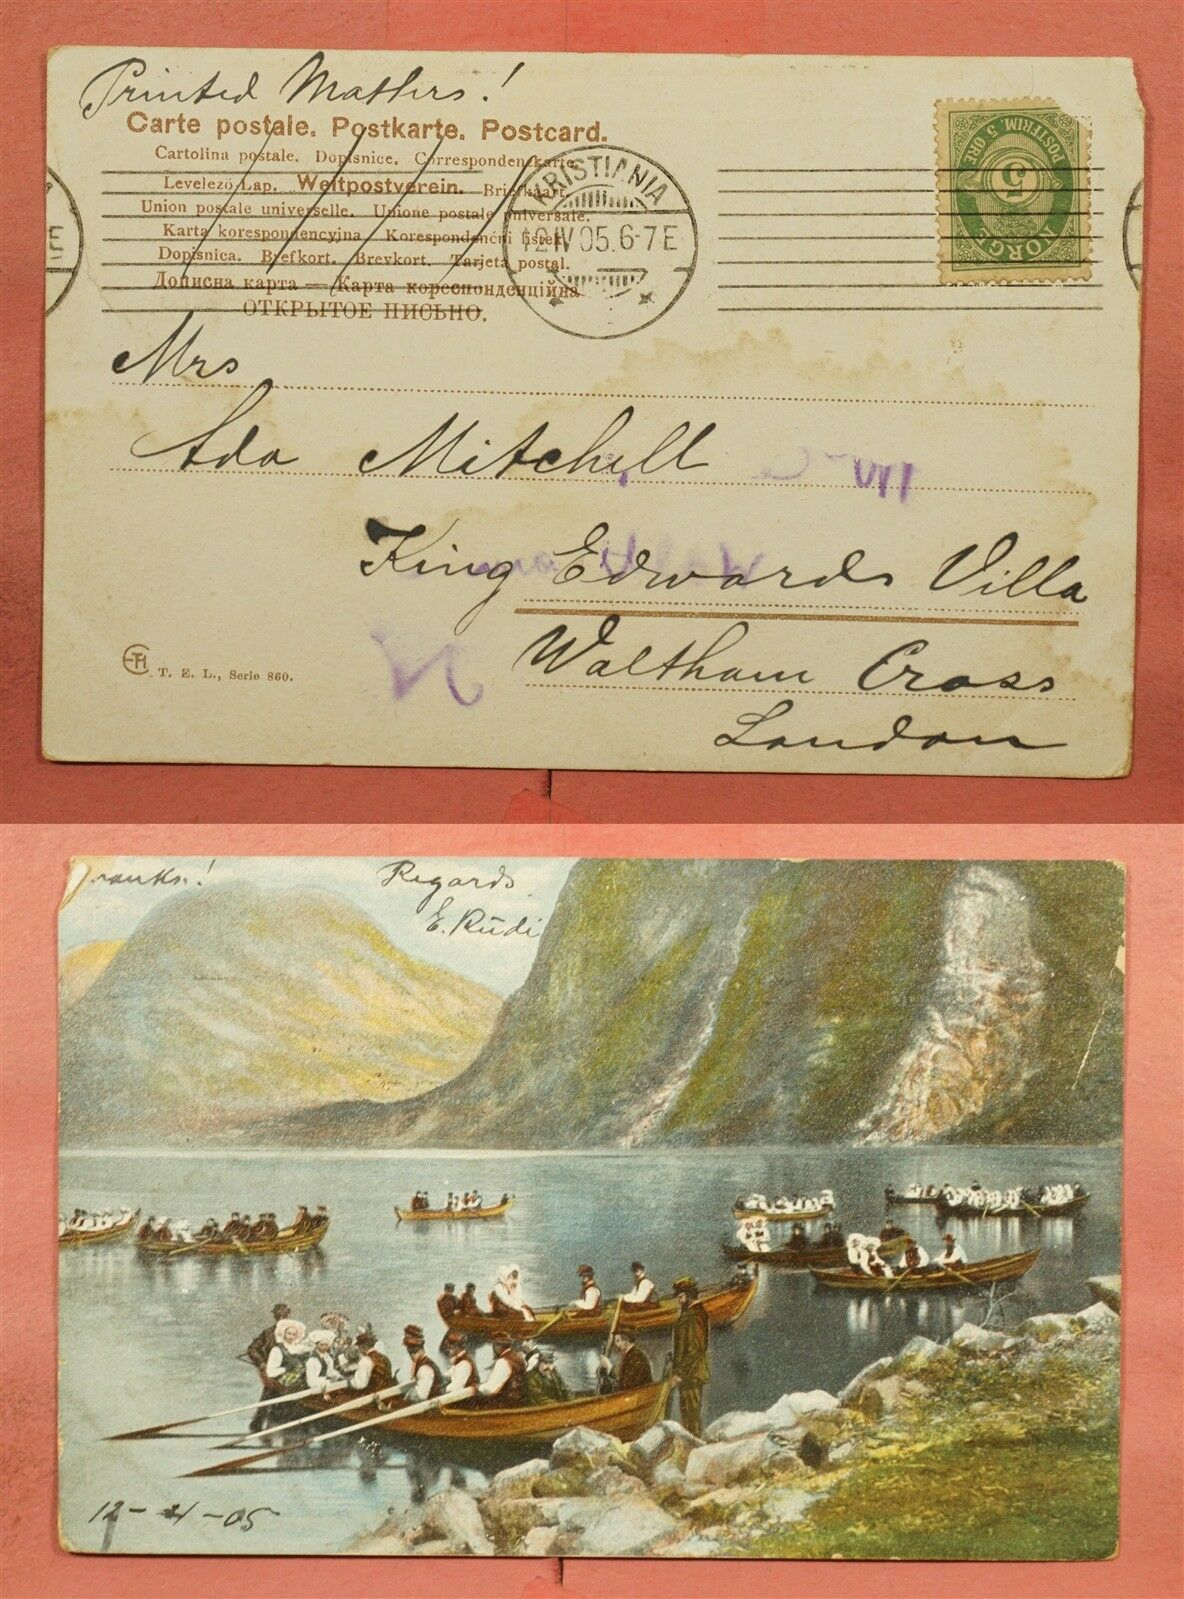 Printed Matters!
Carte postale. Postkarte. Postcard.
Cartolina postale. Dopisnice. Correspondenzkarte.
Levelező-Lap. Weltpostverein. Briefkaart.
Union postale universelle. Unione postale universale.
Karta korespondencyjna Korespondenčni listek.
Dopisnica. Brefkort. Brevkort. Tarjeta postal.
Дописна карта — Карта корреспонденційна
ОТКРЫТОЕ ПИСЬМО.
KRISTIANIA
12 IV 05. 6-7 E
E
NORGE
5
POSTFRIM. 5 ØRE
Mrs
Ada Mitchell
King Edwards Villa
Waltham Cross
London
T. E. L., Serie 860.
Thanks!
Regards
E. Rüdi
12-4-05